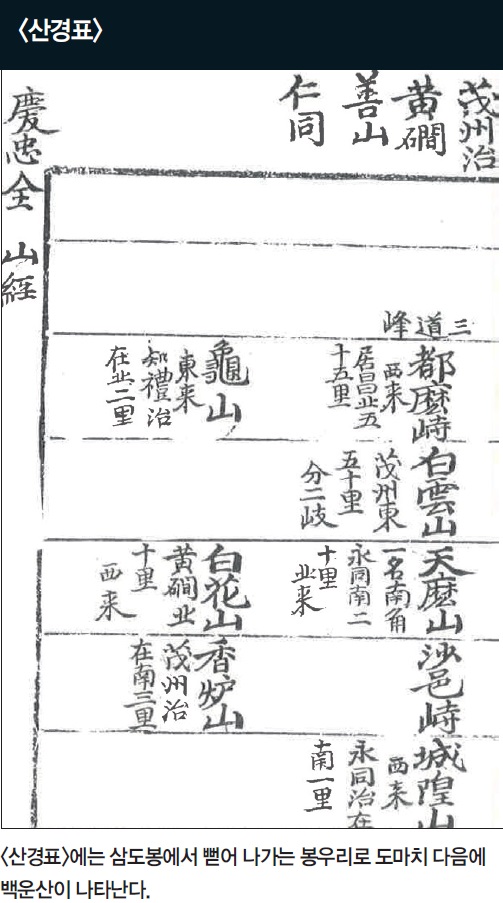 〈산경표〉
茂州治
黄磵
善山
仁同
三道峰
都麽峙
西来
居昌北五
十五里
龜山
東来
知禮治
在北二里
白雲山
茂州東
五十里
分二岐
天麽山
一名南角
永同南二
十里
北来
白花山
黄磵北
十里
西来
沙邑峙
香炉山
茂州治
在南三里
城隍山
西来
永同治在
南一里
慶忠全 山経
〈산경표〉에는 삼도봉에서 뻗어 나가는 봉우리로 도마치 다음에
백운산이 나타난다.